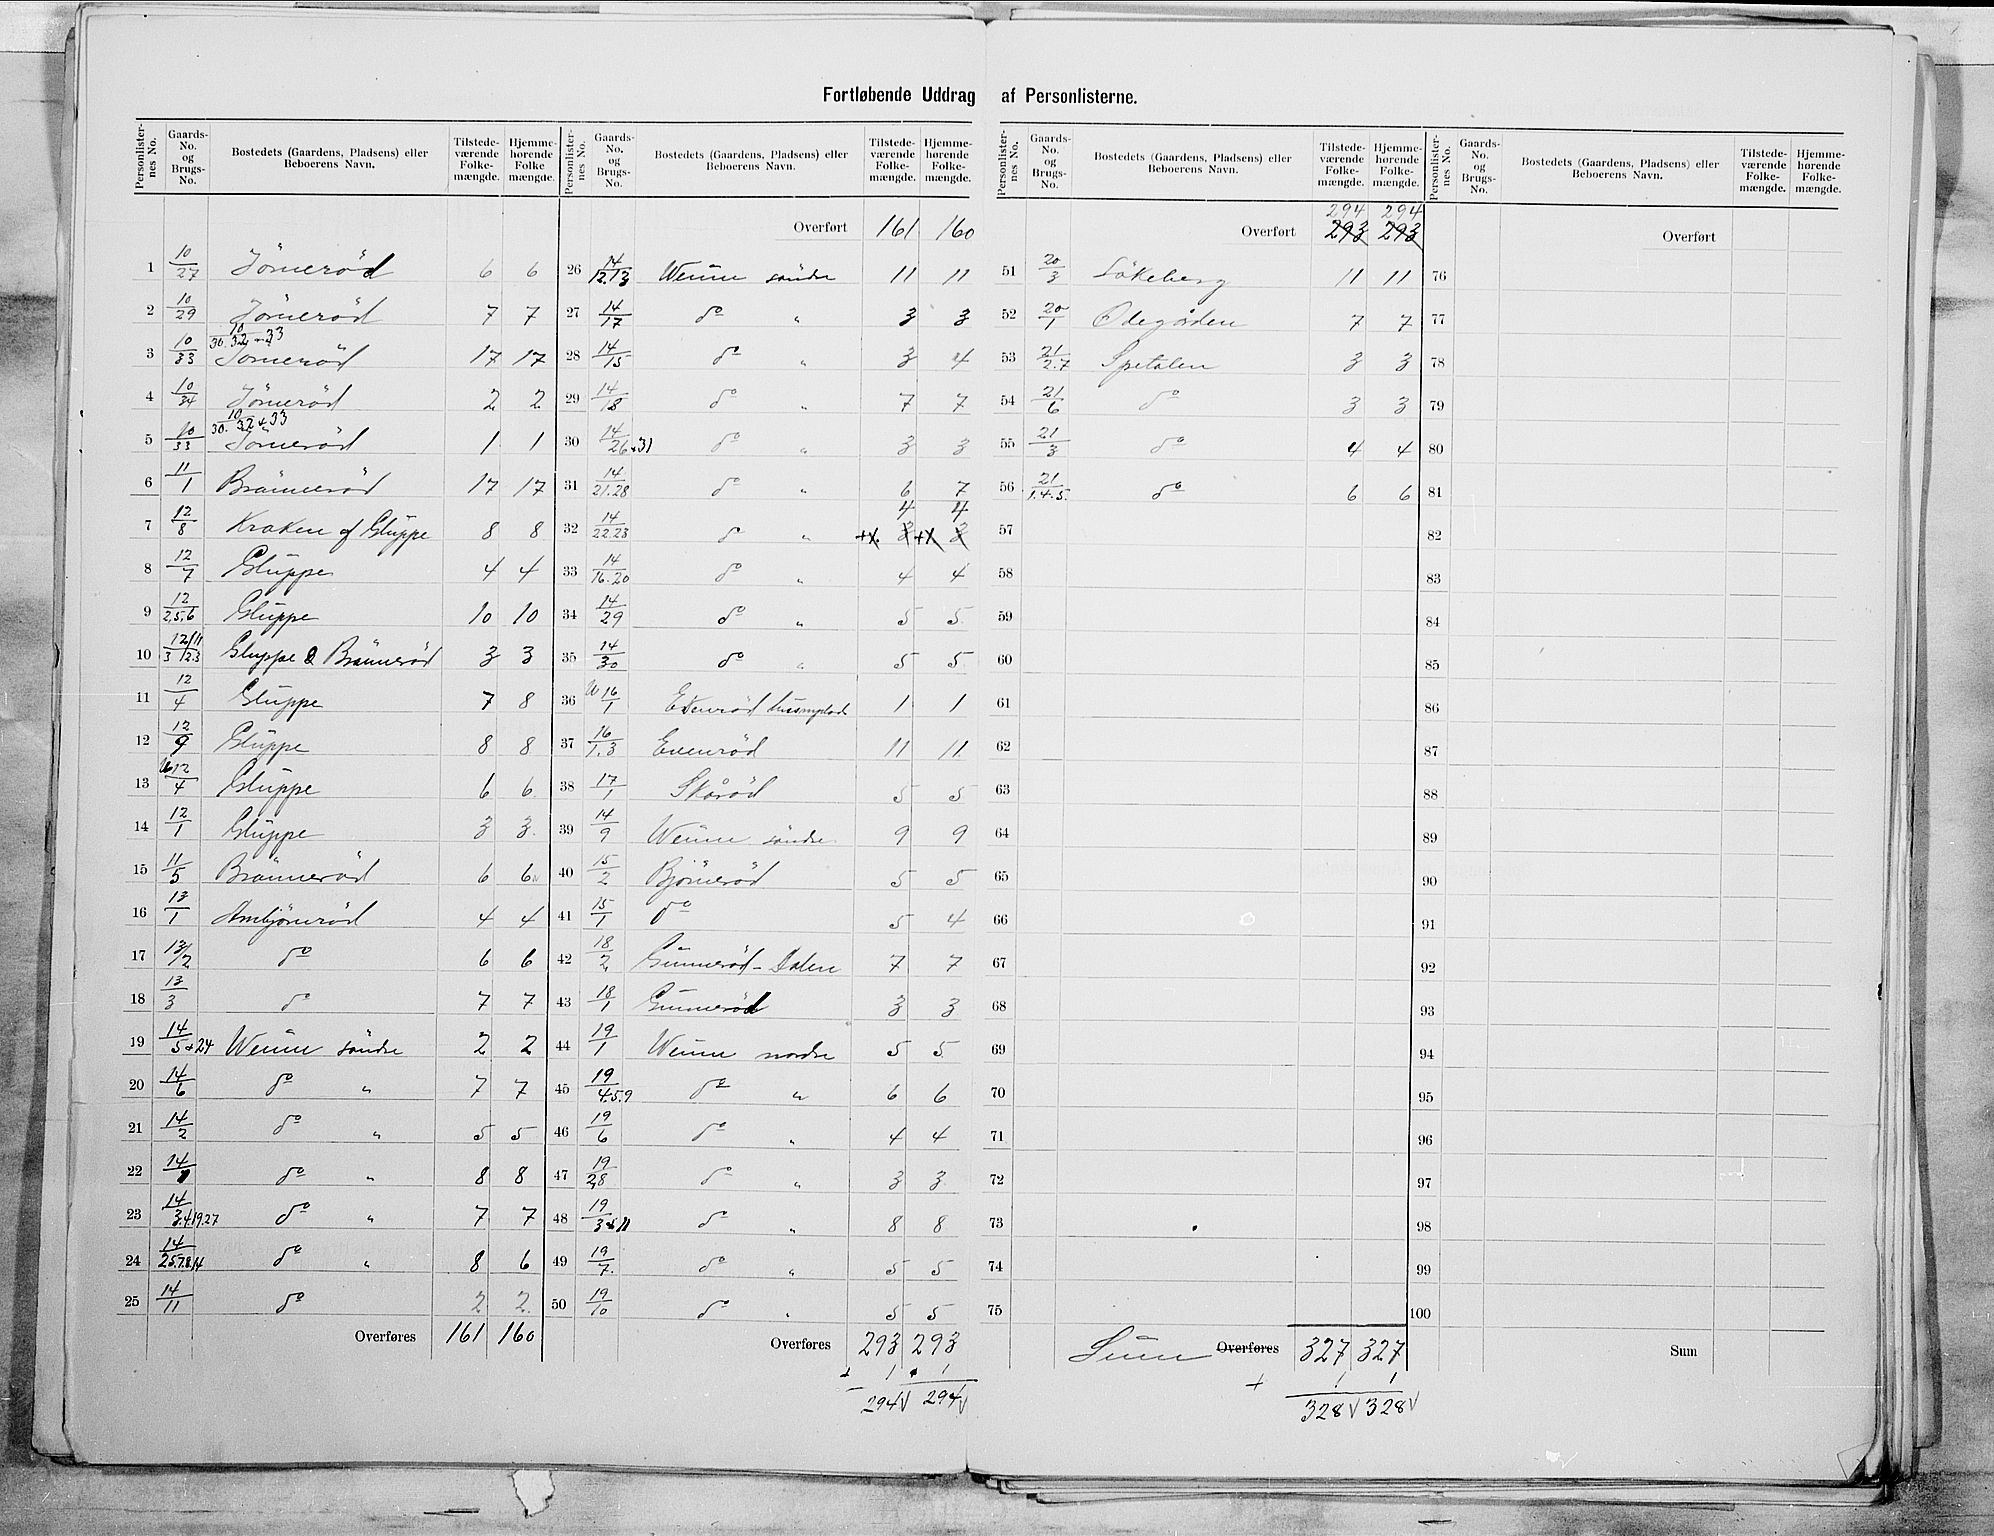 Fortløbende Uddrag af Personlisterne.
Personlister-nes No. | Gaards-No. og Brugs-No. | Bostedets (Gaardens, Pladsens) eller Beboerens Navn. | Tilstede-værende Folke-mængde. | Hjemme-hørende Folke mængde.
1 10/27 Jörnerød 6 6
2 10/29 Jörnerød 7 7
10/30.32 + 33
3 10/33 Jörnerød 17 17
4 10/34 Jörnerød 2 2
10/30.32 + 33
5 10/33 Jörnerød 1 1
6 11/1 Brännerød 17 17
7 12/8 Kraken af Gluppe 8 8
8 12/7 Gluppe 4 4
9 12/2,5,6 Gluppe 10 10
10 12/3 11/2.3 Gluppe & Brännerød 3 3
11 12/4 Gluppe 7 8
12 12/9 Gluppe 8 8
13 12/4 Gluppe 6 6
14 12/1 Gluppe 3 3
15 11/5 Brännerød 6 6
16 13/1 Ambjörnrød 4 4
17 13/2 do 6 6
18 13/3 do 7 7
19 14/5+24 Weum söndre 2 2
20 14/6 do " 7 7
21 14/2 do " 5 5
22 14/1 do " 8 8
23 14/3.4.19.27 do " 7 7
24 14/25.7.8.14 do " 8 6
25 14/11 do 2 2
Overføres 161 160
Personlister-nes No. | Gaards-No. og Brugs-No. | Bostedets (Gaardens, Pladsens) eller Beboerens Navn. | Tilstede-værende Folke-mængde. | Hjemme-hørende Folke-mængde.
Overført 161 160
26 14/12.13 Weum söndre 11 11
27 14/17 do " 3 3
28 14/15 do " 3 4
29 14/18 do " 7 7
30 14/26+31 do " 3 3
31 14/21.28 do " 6 7
4 4
32 14/22.23 do " +X. 3 +X. 3
33 14/16.20 do " 4 4
34 14/29 do " 5 5
35 14/30 do " 5 5
36 16/1 Evenrød husmplads 1 1
37 16/1.3 Evenrød 11 11
38 17/1 Skårød 5 5
39 14/9 Weum söndre 9 9
40 15/2 Bjørnerød 5 5
41 15/1 do 5 4
42 18/2 Gunnerød - Dalen 7 7
43 18/1 Gunnerød 3 3
44 19/1 Weum nordre 5 5
45 19/4.5.9 do " 6 6
46 19/6 do " 4 4
47 19/2,8 do " 3 3
48 19/3+11 do " 8 8
49 19/7. do " 5 5
50 19/10 do " 5 5
Overføres 293 293
+ 1 + 1
294 294
Personlister-nes No. | Gaards-No. og Brugs-No. | Bostedets (Gaardens, Pladsens) eller Beboerens Navn. | Tilstede-værende Folke-mængde. | Hjemme-hørende Folke-mængde.
294 294
Overført 293 293
51 20/3 Lökeberg 11 11
52 20/1 Ødegården 7 7
53 21/2.7 Spetalen 3 3
54 21/6 do 3 3
55 21/3 do 4 4
56 21/1.4.5. do 6 6
57
58
59
60
61
62
63
64
65
66
67
68
69
70
71
72
73
74
75
Sum Overføres 327 327
+ 1 1
328 328
Personlister-nes No. | Gaards-No. og Brugs-No. | Bostedets (Gaardens, Pladsens) eller Beboerens Navn. | Tilstede-værende Folke-mængde. | Hjemme-hørende Folke-mængde.
Overført
76
77
78
79
80
81
82
83
84
85
86
87
88
89
90
91
92
93
94
95
96
97
98
99
100
Sum